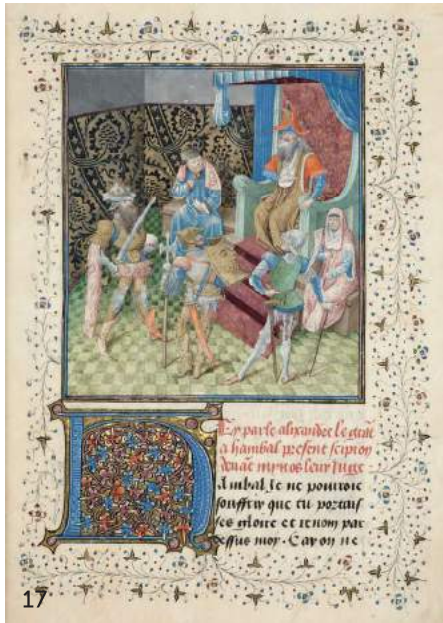 Cy parle alixandre le grāt
a hanibal present scipion
deuāt mynos leur iuge
H Anibal Ie ne pouroie
souffrir que tu portas
ses gloire et renom par
dessus moy. Car on ne
17